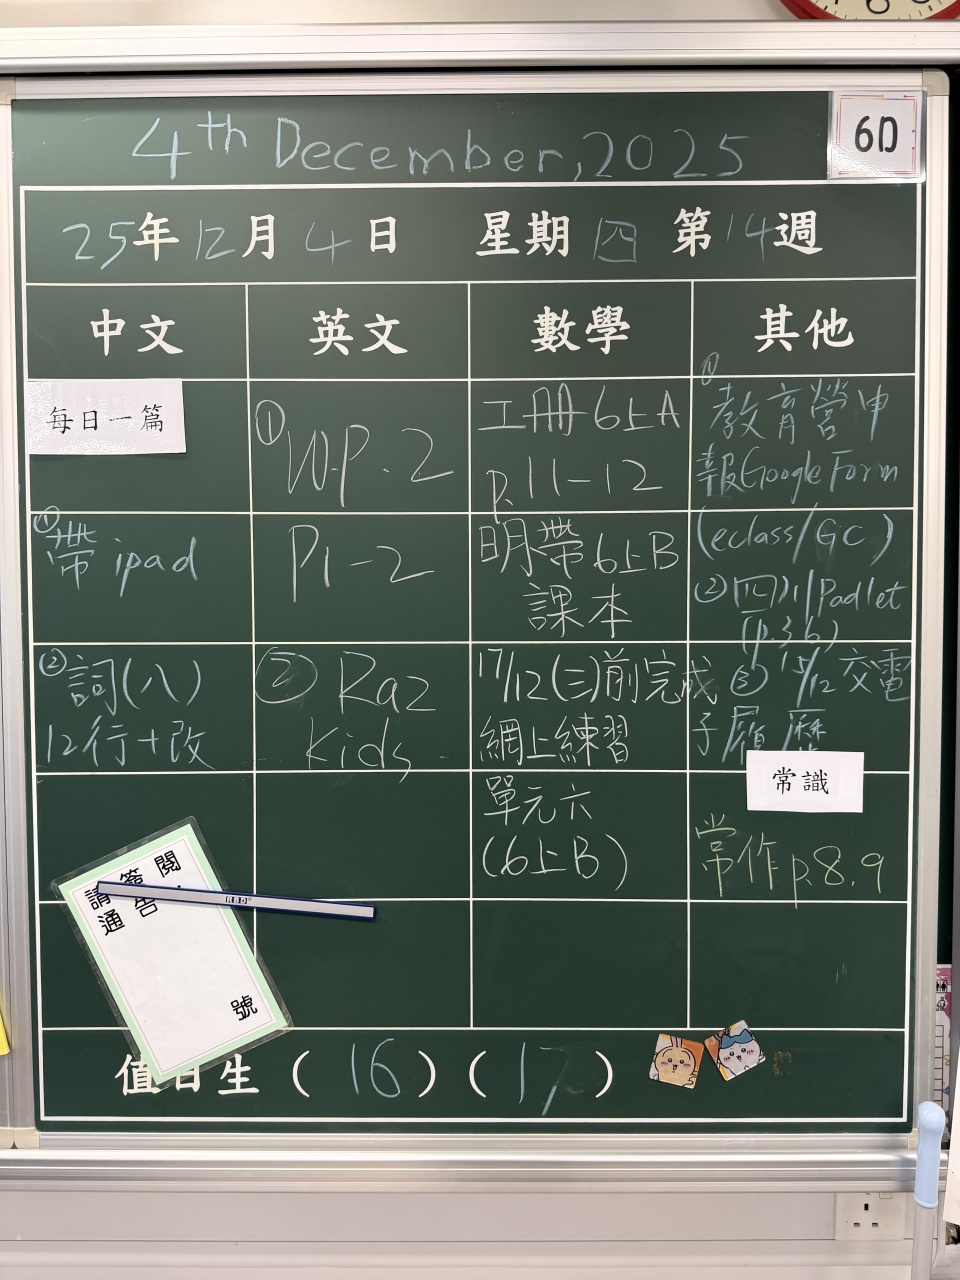 4th December, 2025
6D
25年12月4日 星期四 第14週
中文
每日一篇
①帶ipad
②詞(八)
12行+改
英文
①W.P.2
P1-2
②Raz
Kids
數學
工冊6上A
p.11-12
明帶6上B
課本
17/12(三)前完成
網上練習
單元六
(6上B)
其他
①教育營申
報Google Form
(eclass/GC)
②四川Padlet
(p.36)
③15/12交電
子履歷
常識
常作p.8.9
請簽閱
通告
號
RBD
值日生(16)(17)